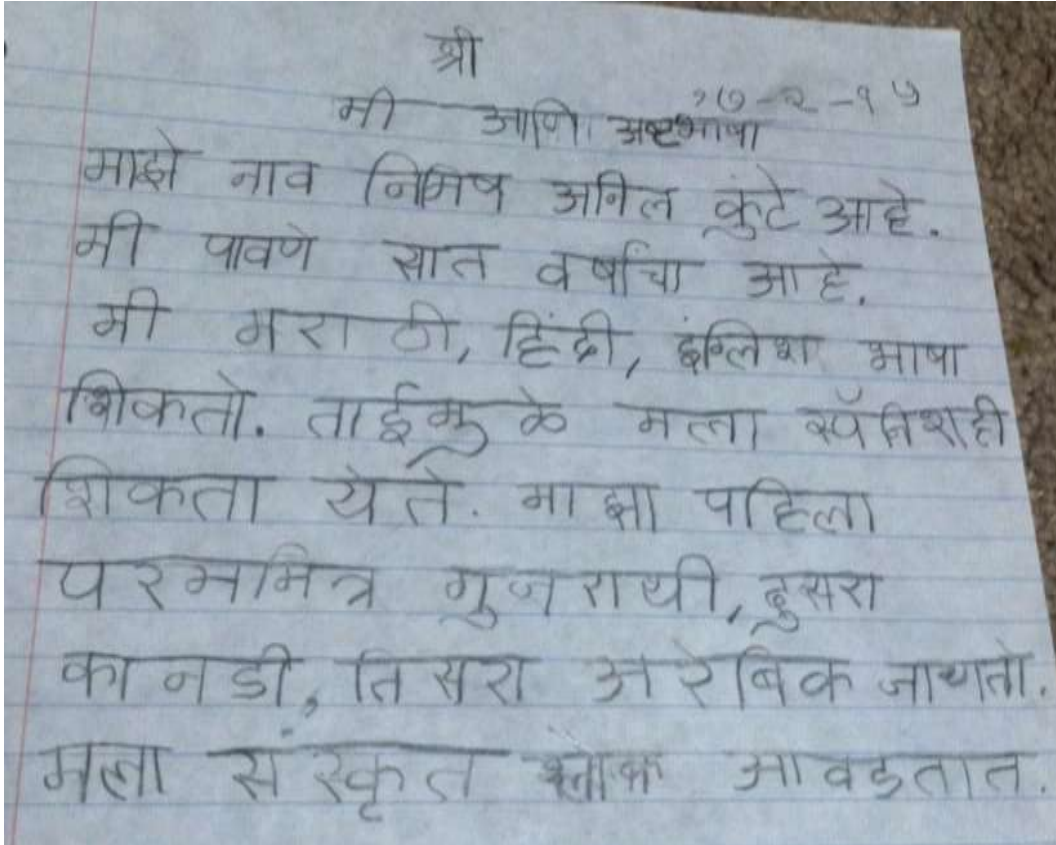 श्री
२७-२-१५
मी आणि अष्टभाषा
माझे नाव निमिष अनिल कुंटे आहे.
मी पावणे सात वर्षांचा आहे.
मी मराठी, हिंदी, इंग्लिश भाषा
शिकतो. ताईमुळे मला स्पॅनिशही
शिकता येते. माझा पहिला
परममित्र गुजराथी, दुसरा
कानडी, तिसरा अरेबिक जाणतो.
मला संस्कृत श्लोक आवडतात.